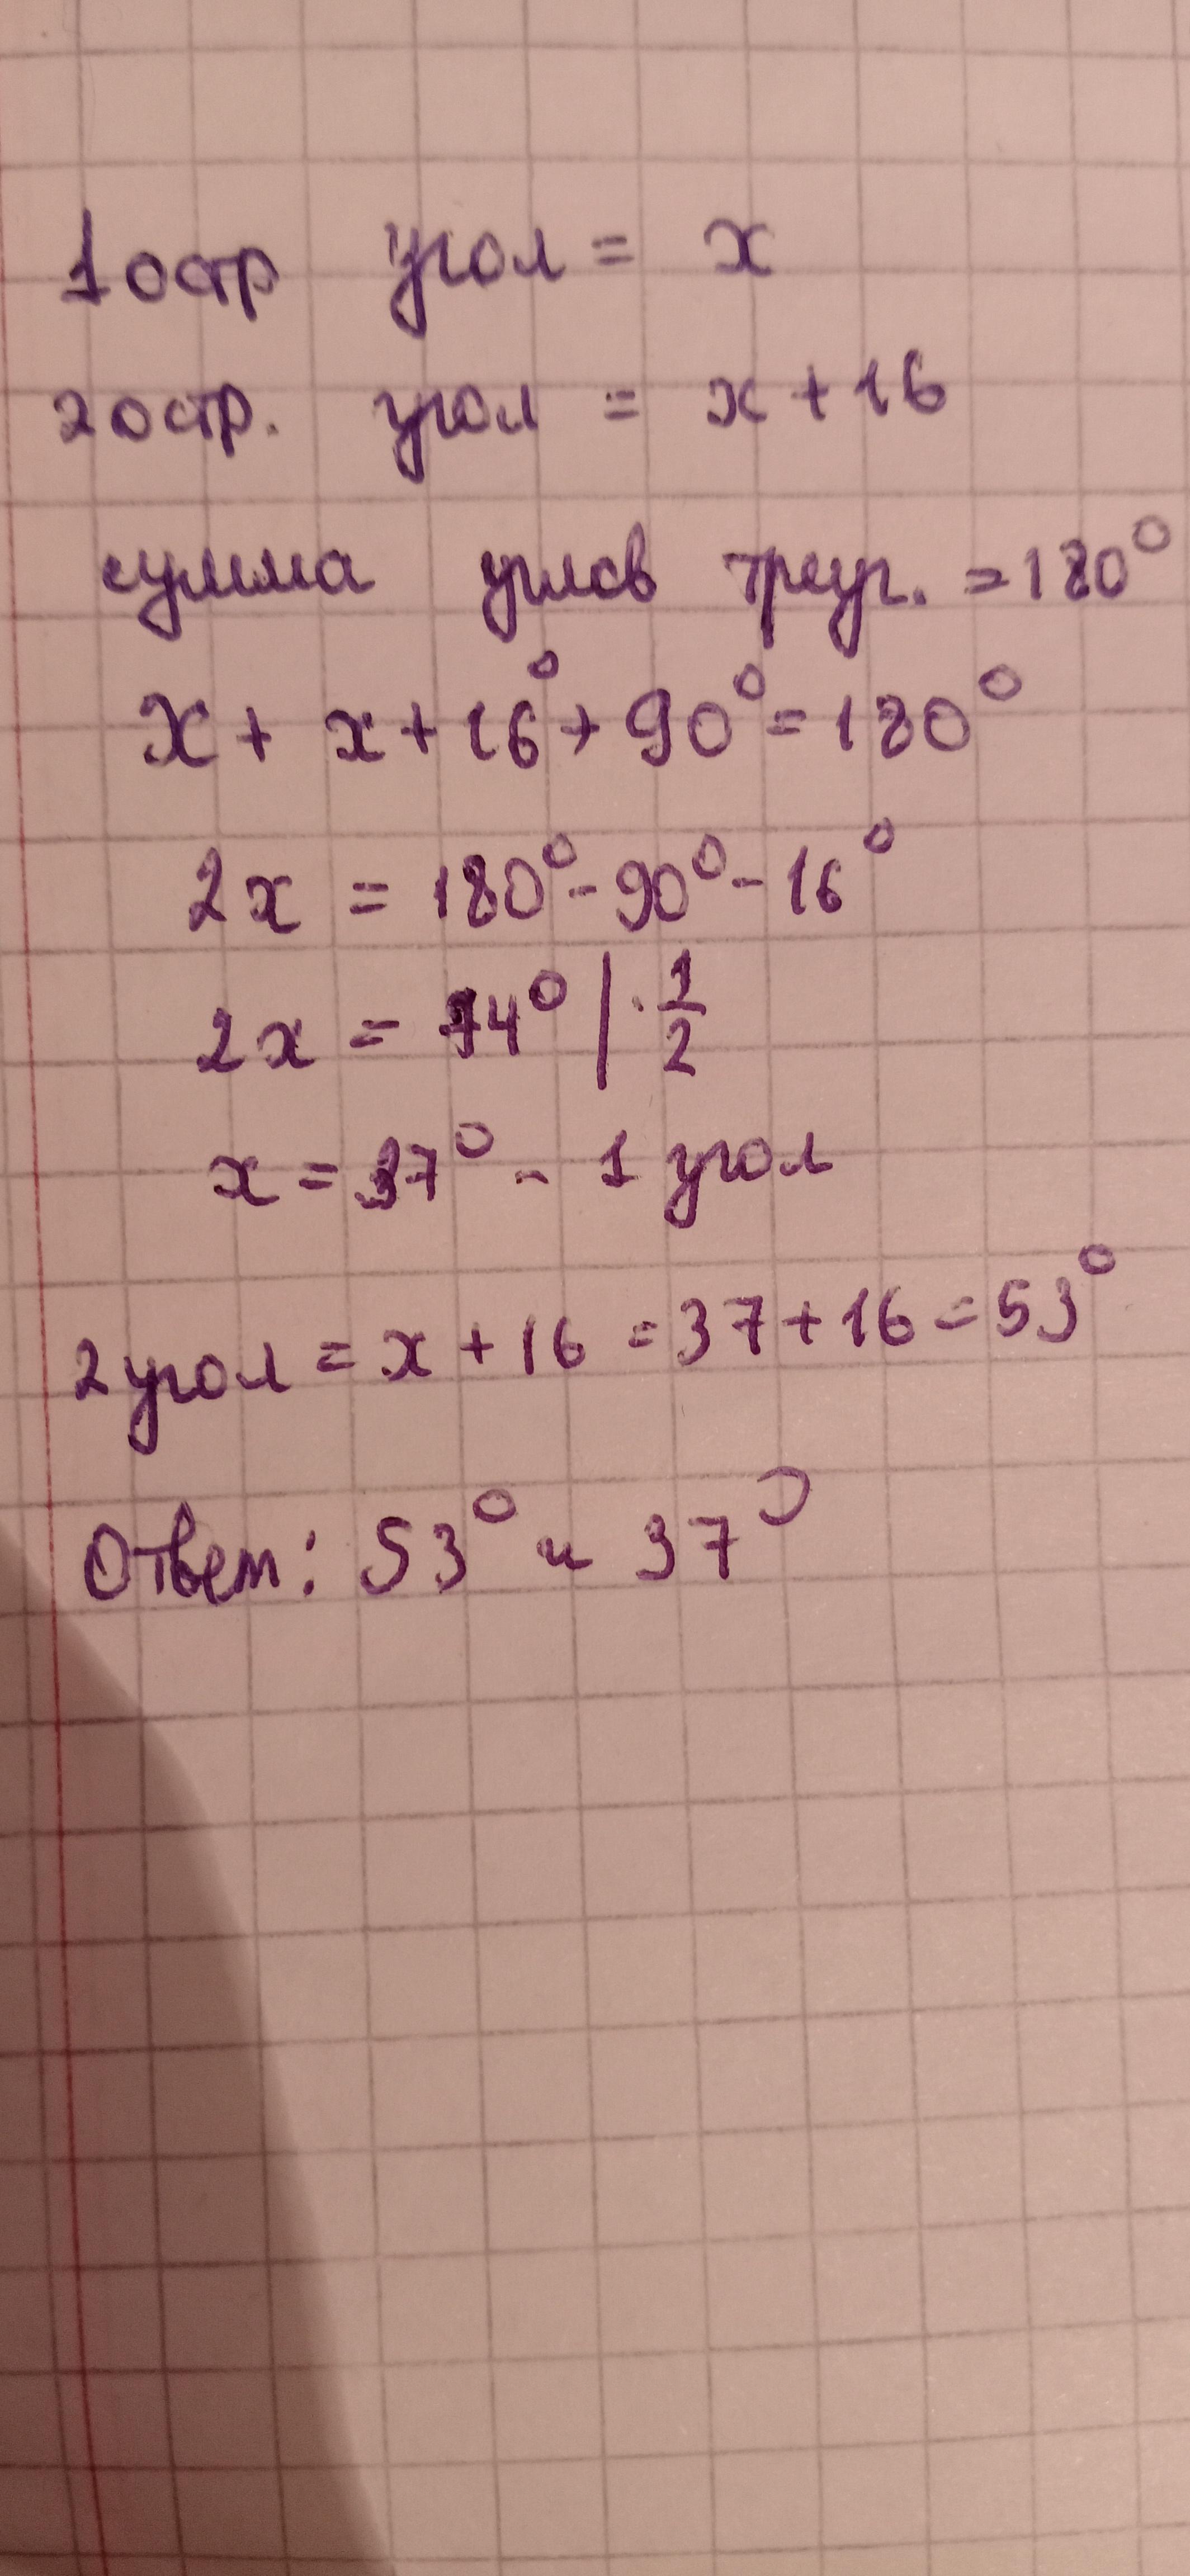 1 остр угол = x
2 остр. угол = x + 16
сумма углов треуг. = 180°
x + x + 16° + 90° = 180°
2x = 180° - 90° - 16°
2x = 74° | · 1/2
x = 37° - 1 угол
2 угол = x + 16 = 37 + 16 = 53°
Ответ: 53° и 37°